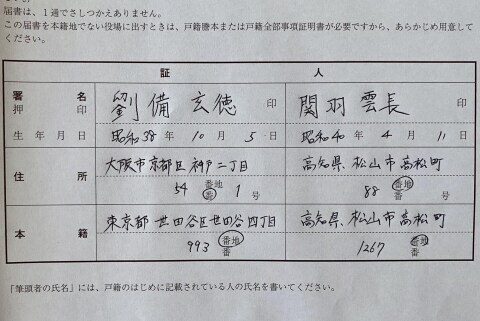 い。
届書は、1通でさしつかえありません。
この届書を本籍地でない役場に出すときは、戸籍謄本または戸籍全部事項証明書が必要ですから、あらかじめ用意して
ください。
証 人
署名押印 劉備 玄徳 印 関羽 雲長 印
生年月日 昭和38年10月5日 昭和40年4月11日
住所 大阪市京都区神戸二丁目 高知県松山市高松町
54 番地 番 1号 88 番地 番 号
本籍 東京都世田谷区世田谷四丁目 高知県松山市高松町
993 番地 番 1267 番地 番
「筆頭者の氏名」には、戸籍のはじめに記載されている人の氏名を書いてください。